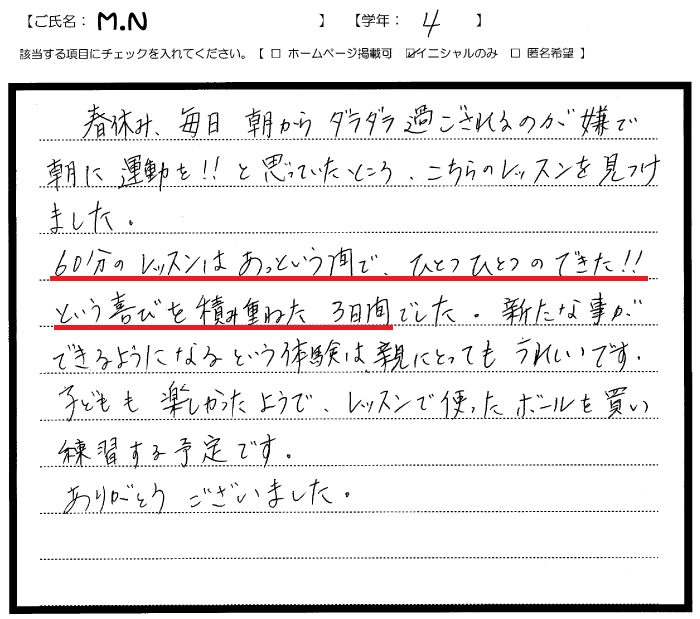 【ご氏名： M.N 】 【学年： 4 】
該当する項目にチェックを入れてください。【 □ ホームページ掲載可 ☑イニシャルのみ □ 匿名希望 】
春休み、毎日 朝から ダラダラ過ごされるのが嫌で
朝に 運動を!! と思っていたところ、こちらのレッスンを見つけ
ました。
60分の レッスンは あっという間で、ひとつひとつの できた!!
という喜びを 積み重ねた 3日間でした。 新たな事が
できるようになるという体験は、親にとっても うれしいです。
子どもも 楽しかったようで、レッスンで使ったボールを買い
練習する予定です。
ありがとう ございました。